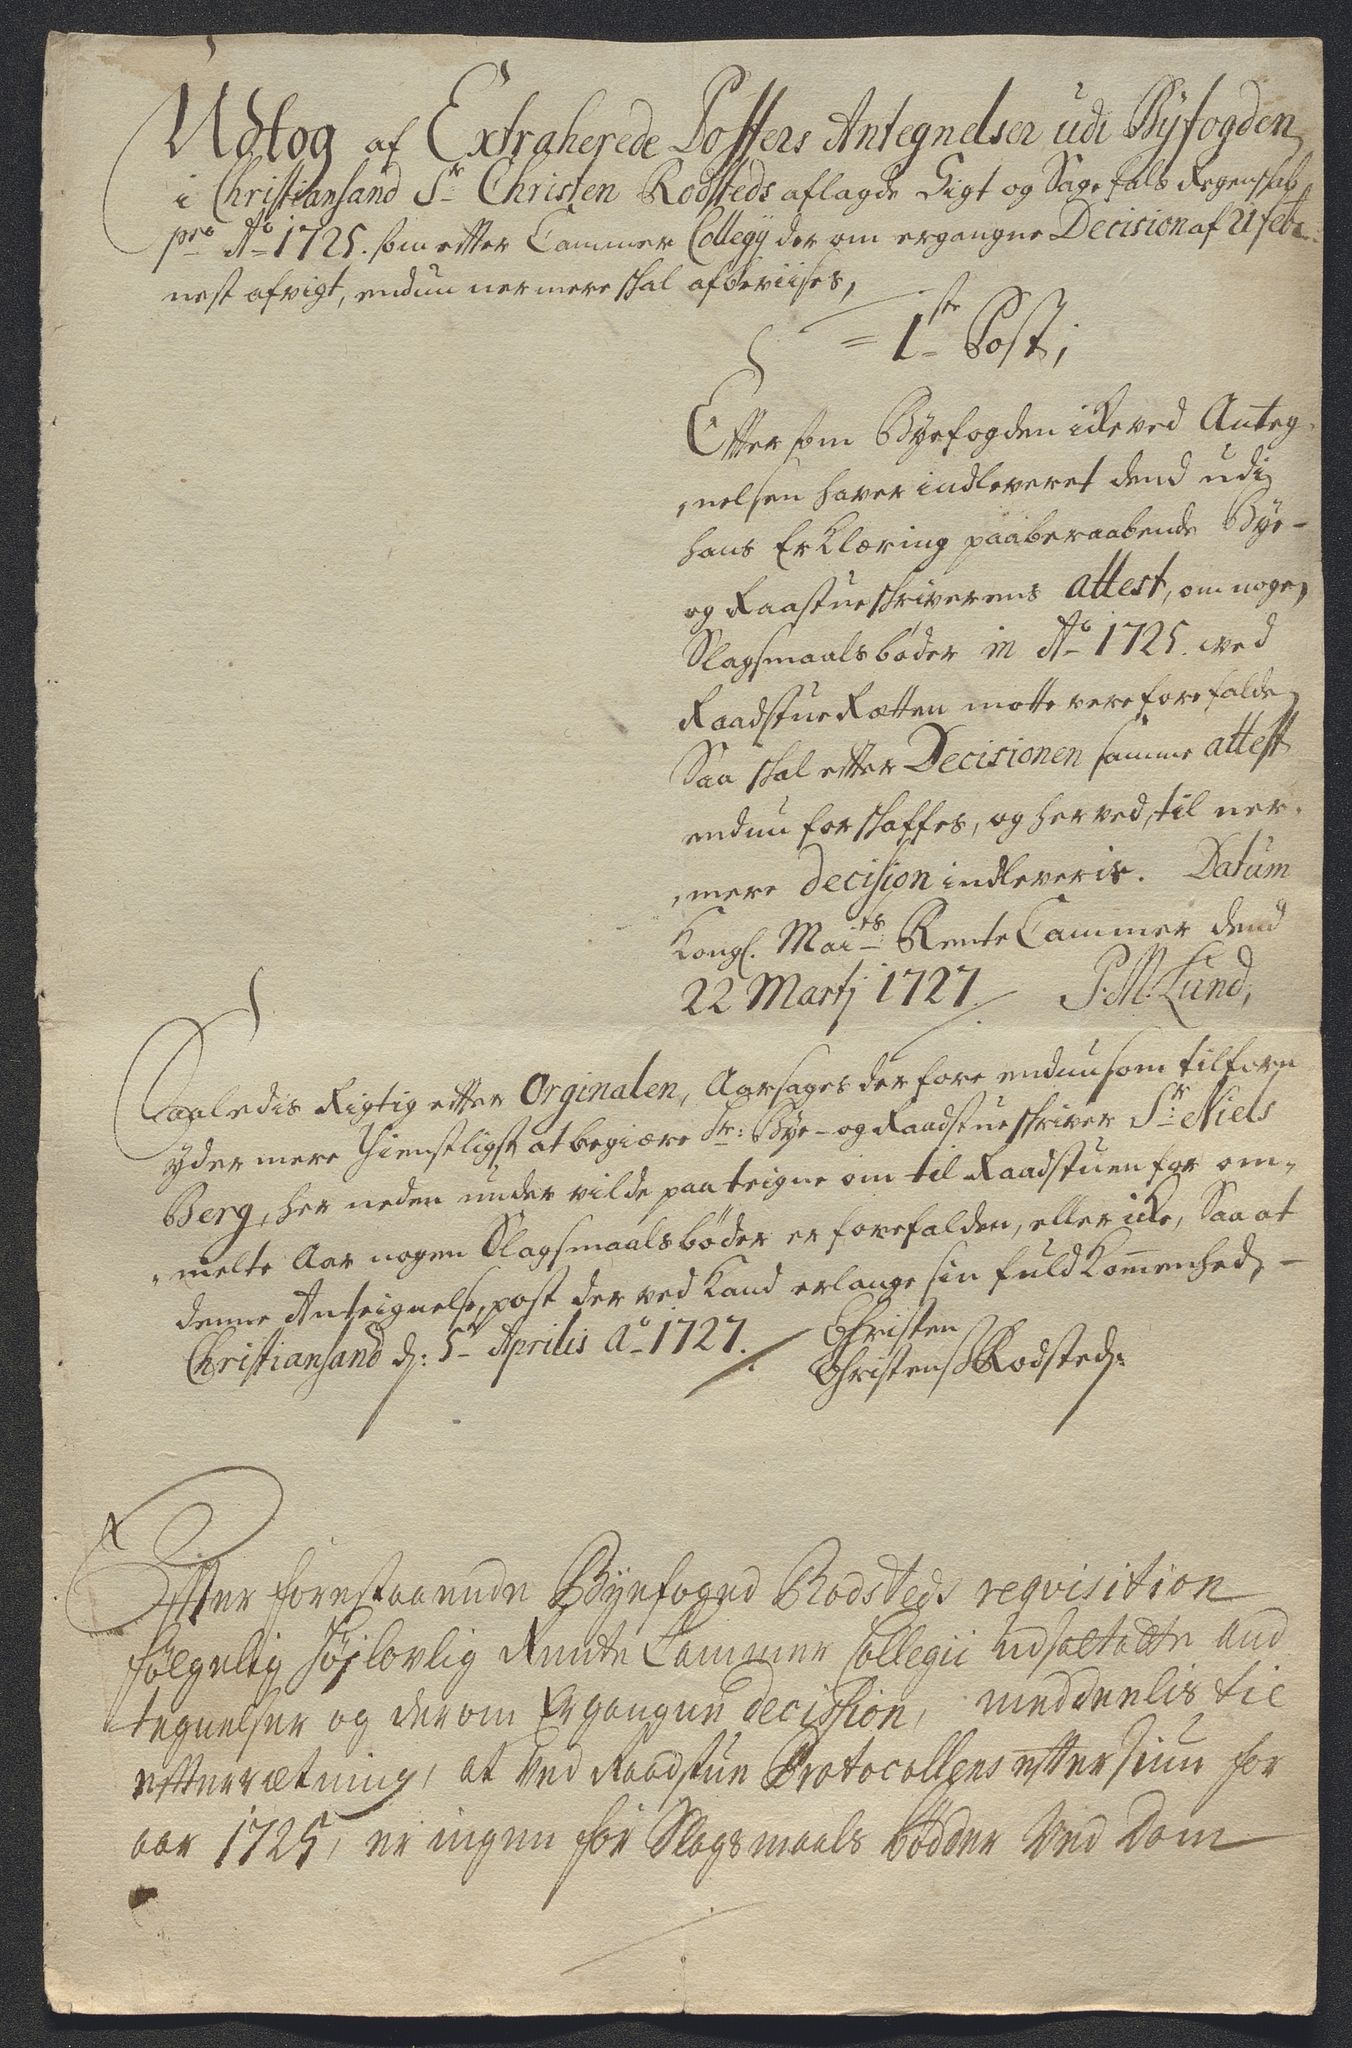 Udtog af Extraherede Posters Antegnelser udi Byfogden
i Christiansand Sr Christen Rodsteds aflagde Sigt og Sagefals Regenskab
pro Ao 1725. som efter Cammer Collegij der om ergangne Decision af 21 febr:
nest afvigt, enduu nermere skal afbeviises,
= 1ste Post;
Efter som Byefogden icke ved Anteg-
nelsen haver indleveret dend udi
hans Erklæring paaberaabende Bye-
og Raastueskriverens attest, om nogen
Slagsmaals bøder in Ao 1725. ved
Raadstue Rætten motte vere forefalden
Saa skal efter Decisionen samme attest
enduu forskaffes, og herved, til ner-
mere decision indleveris. Datum
Kongl. Maits Rente Cammer dend
22 Martj 1727 P: M: Lund,
Saaledis Rigtig efter Orginalen, Aarsages derfore enduu som tilforn
ydermere tienstligst at begiære Hr: Bye- og Raadstueskriver Sr Niels
Berg, her neden under vilde paateigne om til Raadstuen for om-
melte Aar nogen Slagsmaals bøder er forefalden, eller icke, Saa at
denne Anteignelse, post der ved Kand erlange sin fuldkommenhed, -
Christiansand d: 5te Aprilis Ao 1727. Christen
Christens: Rodsted:
Efter forestaaende Byefoged Rodsteds reqvisition
følgelig høylovlig Rente Cammer Collegii udsatte And
tegnelser og derom Ergangne decission, meddeelis til
efterrætning, at ved Raadstue Protocollens eftersiun for
aar 1725, er ingen for Slagsmaals bødder ved Dom